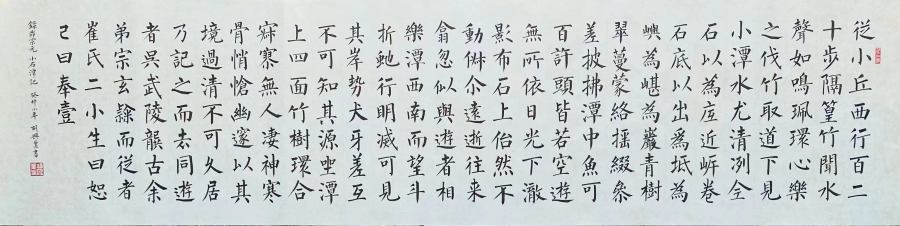 從小丘西行百二
十步隔篁竹聞水
聲如鳴珮環心樂
之伐竹取道下見
小潭水尤清冽全
石以為底近岸卷
石底以出為坻為
嶼為嵁為巖青樹
翠蔓蒙絡搖綴參
差披拂潭中魚可
百許頭皆若空遊
無所依日光下澈
影布石上佁然不
動俶尒遠逝往來
翕忽似與遊者相
樂潭西南而望斗
折虵行明滅可見
其岸勢犬牙差互
不可知其源坐潭
上四面竹樹環合
寂寥無人凄神寒
骨悄愴幽邃以其
境過清不可久居
乃記之而去同遊
者吳武陵龔古余
弟宗玄隸而從者
崔氏二小生曰恕
己曰奉壹
錄柳宗元小石潭記 癸卯小年 書